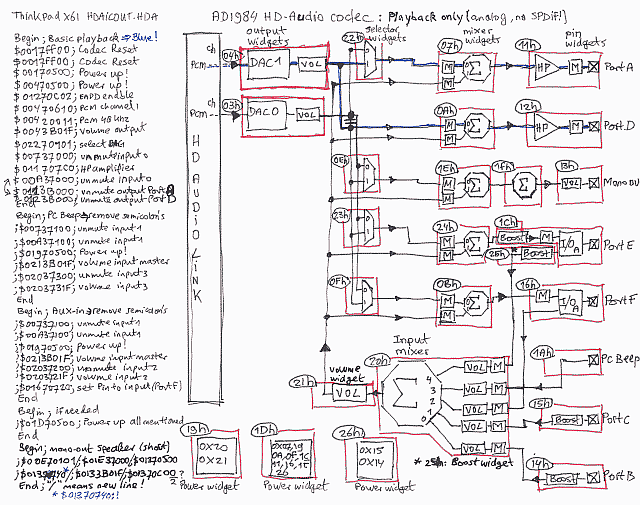 ThinkPad X61 HDAICOUT.HDA
AD1984 HD-Audio codec: Playback only (analog, no SPDif!)
Begin; Basic playback => Blue!
$0017FF00; Codec Reset
$0017FF00; Codec Reset
$00170500; Power up!
$00470500; Power up!
$01270C02; EAPD enable
$00470610; Pcm channel 1
$00420011; Pcm 48 kHz
$0043B01F; Volume output
$02270101; select
$00737000; unmute input 0
$011707C0; HP amplifier
$00A37000; unmute input 0
unmute output Port A
unmute output Port D
End
Begin; PC Beep, remove semicolons
;$00737100; unmute input 1
;$00A37100; unmute input 1
;$01970500; Power up!
;$0213B01F; volume input master
;$02037300; unmute input 3
;$0203731F; volume input 3
End
Begin; Aux-in, remove semicolons
;$00737100; unmute input 1
;$00A37100; unmute input 1
;$01970500; Power up!
;$0213B01F; volume input master
;$02037200; unmute input 2
;$0203721F; volume input 2
;$01670720; set Pin to input (Port F)
End
Begin; if needed
;$01D70500; Power up all mentioned
End
Begin; mono-out speaker (short)
;$00E70101/;$01E37000/;$01F70500
End; "/" means new line!
* $01370740;!
HD AUDIO LINK
output widgets
selector widgets
mixer widgets
pin widgets
ch
Pcm
04h
DAC1
VOL
22h
07h
M
M
Σ
11h
HP
M
Port A
ch
Pcm
03h
DAC0
VOL
0Ah
M
M
Σ
12h
HP
M
Port D
0Eh
0
1
1Eh
M
M
Σ
1Fh
Σ
13h
VOL
M
Mono Out
23h
0
1
24h
M
M
Σ
1Ch
Boost
M
25h
Boost
I/OA
Port E
0Fh
0
1
0Bh
M
M
Σ
16h
M
I/OA
Port F
Input mixer
volume widget
21h
VOL
20h
Σ
4
3
2
0
1
VOL
M
VOL
M
VOL
M
VOL
M
VOL
M
1Ah
PC Beep
15h
Boost
Port C
14h
Boost
Port B
* 25h: Boost widget
19h
0X20
0X21
Power widget
1Dh
Power widget
26h
0X15
0X14
Power widget